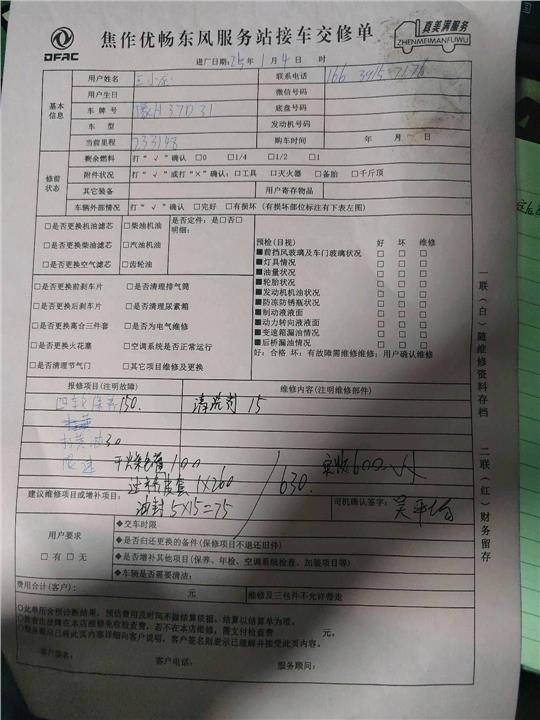 DFAC
焦作优畅东风服务站接车交修单
真美满服务
ZHENMEIMANFUWU
进厂日期:25年1月4日 时
基本信息
用户姓名 联系电话 166
用户生日 微信号码
车牌号 豫H37D31 底盘号码
车型 发动机号码
当前里程 233148 购车时间 年 月 日
修前状态
剩余燃料 打“√”确认 □0 □1/4 □1/2 □1
附件状况 打“√”或打“×”确认:□工具 □灭火器 □备胎 □千斤顶
其它装备 用户寄存物品
车辆外部情况 打“√”确认 □完好 □有损坏(有损坏部位标注有下表左图)
□是否更换机油滤芯 □柴油机油 是否定件:是□否□
明细:
□是否更换柴油滤芯 □汽油机油
□是否更换空气滤芯 □齿轮油
□是否更换前刹车片 □是否清理排气筒
□是否更换后刹车片 □是否清理尿素箱
□是否更换离合三件套 □是否为电气维修
□是否更换火花塞 □空调系统是否正常运行
□是否清理节气门 □其它项目维修及更换
预检(目视) 好 坏 维修
■前挡风玻璃及车门玻璃状况 □ □ □
■灯具情况 □ □ □
■油量状况 □ □ □
■轮胎状况 □ □ □
■发动机机油状况 □ □ □
■防冻防锈瓶状况 □ □ □
■制动液液面 □ □ □
■动力转向液液面 □ □ □
■变速箱漏油情况 □ □ □
■后桥漏油情况 □ □ □
好:合格 坏:有故障需维修维修:用户确认维修
报修项目(注明故障) 维修内容(注明维修部件)
150. 清洗剂 15
30
100
1×260 630. 实收600
建议维修项目或增补项目: 司机确认签字:
油封5×15=75
用户要求
□有 □无
◆交车时限
◆是否归还更换的备件(保修项目不退还旧件)
◆是否增补其他项目(保养、年检、空调系统检查、加装项目等)
◆车辆是否需要清洁:
费用合计(客户): 元 维修及三包件不允许带走
○此单所含预诊断结果,预估费用及时间不做结算依据,结算以结算单为准。
○检查出故障在本店维修免收检查费,若不在本店维修,需支付检查费 元。
○服务顾问已将此页内容详细向客户说明,客户签名则表示已理解并接受此页内容。
客户签名: 客户电话: 服务顾问:
一联(白)随维修资料存档
二联(红)财务留存